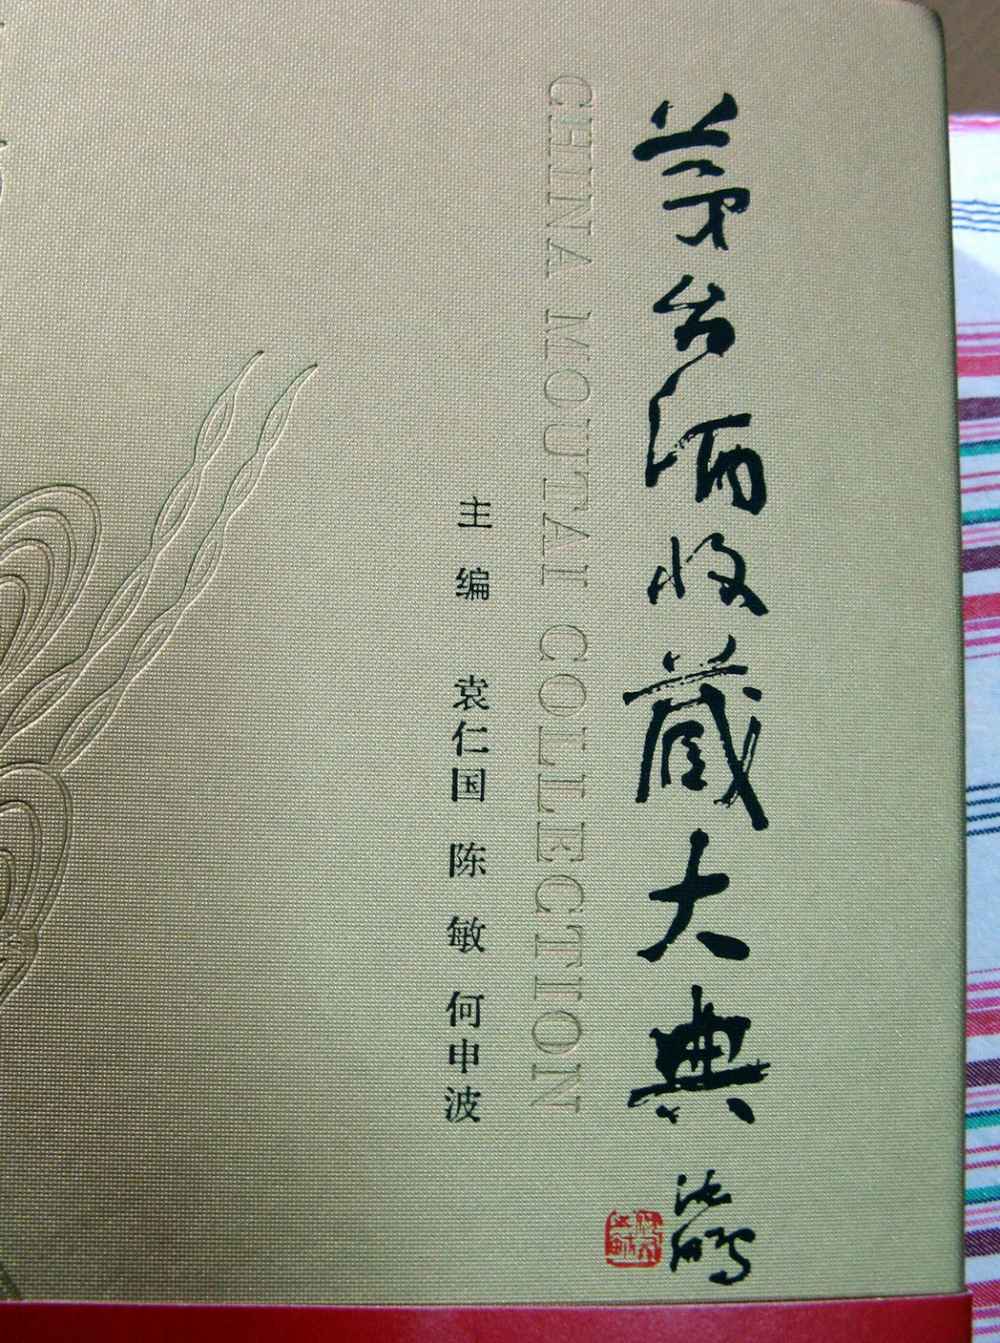 茅台酒收藏大典
沈鹏
CHINA MOUTAI COLLECTION
主编 袁仁国 陈敏 何申波